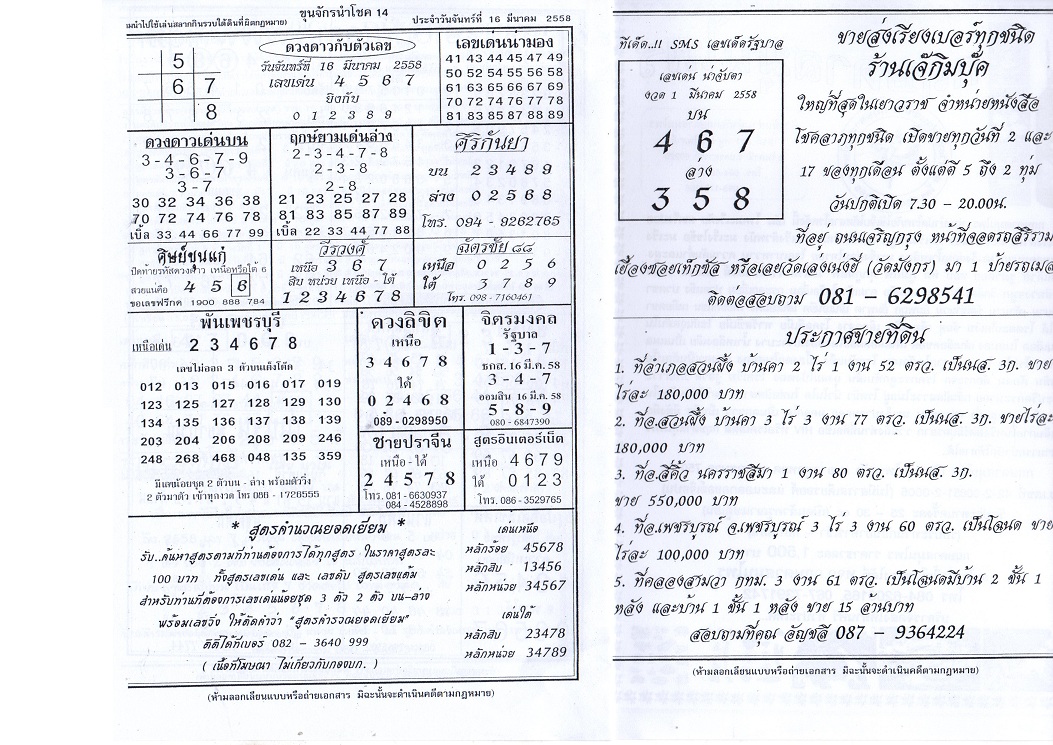 ขุนจักรนำโชค 14
ประจำวันจันทร์ที่ 16 มีนาคม 2558
5
6 7
8
ดวงดาวกับตัวเลข
วันจันทร์ที่ 16 มีนาคม 2558
เลขเด่น 4 5 6 7
ยิงกับ
0 1 2 3 8 9
เลขเด่นน่ามอง
41 43 44 45 47 49
50 52 54 55 56 58
61 63 65 66 67 69
70 72 74 76 77 78
81 83 85 87 88 89
ดวงดาวเด่นบน
3-4-6-7-9
3-6-7
3-7
30 32 34 36 38
70 72 74 76 78
เบิ้ล 33 44 66 77 99
ฤกษ์ยามเด่นล่าง
2-3-4-7-8
2-3-8
2-8
21 23 25 27 28
81 83 85 87 89
เบิ้ล 22 33 44 77 88
ศิริกันยา
บน 2 3 4 8 9
ล่าง 0 2 5 6 8
โทร. 094 - 9262765
ศิษย์ขุนแก่
ปิดท้ายรหัสดวงดาว เหนือหรือใต้ 6
สวยแน่คือ 4 5 6
ขอเลขฟรีกด 1900 888 784
วีรวงศ์
เหนือ 3 6 7
สิบ หน่วย เหนือ - ใต้
1 2 3 4 6 7 8
ฉัตรชัย ๘๘
เหนือ 0 2 5 6
ใต้ 3 7 8 9
โทร. 098 - 7160461
พันเพชรบุรี
เหนือเด่น 2 3 4 6 7 8
เลขไม่ออก 3 ตัวบนเต็งโต๊ด
012 013 015 016 017 019
123 125 127 128 129 130
134 135 136 137 138 139
203 204 206 208 209 246
248 268 468 048 135 359
มีเลขน้อยชุด 2 ตัวบน - ล่าง พร้อมตัววิ่ง
2 ตัวมาตัว เข้าทุกงวด โทร 086 - 1726555
ดวงลิขิต
เหนือ
3 4 6 7 8
ใต้
0 2 4 6 8
089 - 0298950
จิตรมงคล
รัฐบาล
1 - 3 - 7
ธกส. 16 มี.ค. 58
3 - 4 - 7
ออมสิน 16 มี.ค. 58
5 - 8 - 9
080 - 6847390
ชายปราจีน
เหนือ - ใต้
2 4 5 7 8
โทร. 081 - 6630937
084 - 4528898
สูตรอินเตอร์เน็ต
เหนือ 4 6 7 9
ใต้ 0 1 2 3
โทร. 086 - 3529765
* สูตรคำนวณยอดเยี่ยม *
รับ..ค้นหาสูตรตามที่ท่านต้องการได้ทุกสูตร ในราคาสูตรละ
100 บาท ทั้งสูตรเลขเด่น และ เลขดับ สูตรเลขแต้ม
สำหรับท่านที่ต้องการเลขเด่นน้อยชุด 3 ตัว 2 ตัว บน-ล่าง
พร้อมเลขวิ่ง ให้ติดคำว่า "สูตรคำรวณยอดเยี่ยม"
ติดีได้ที่เบอร์ 082 - 3640 999
( เนื้อที่โฆษณา ไม่เกี่ยวกับกองบก. )
เด่นเหนือ
หลักร้อย 45678
หลักสิบ 13456
หลักหน่วย 34567
เด่นใต้
หลักสิบ 23478
หลักหน่วย 34789
(ห้ามลอกเลียนแบบหรือถ่ายเอกสาร มิฉะนั้นจะดำเนินคดีตามกฎหมาย)
ทีเด็ด..!! SMS เลขเด็ดรัฐบาล
เลขเด่น น่าจับตา
งวด 1 มีนาคม 2558
บน
4 6 7
ล่าง
3 5 8
ขายส่งเรียงเบอร์ทุกชนิด
ร้านเจ๊กิมบุ๊ค
ใหญ่ที่สุดในเยาวราช จำหน่ายหนังสือ
โชคลาภทุกชนิด เปิดขายทุกวันที่ 2 และ
17 ของทุกเดือน ตั้งแต่ตี 5 ถึง 2 ทุ่ม
วันปกติเปิด 7.30 - 20.00น.
ที่อยู่ ถนนเจริญกรุง หน้าที่จอดรถสิริราม
เยื้องซอยเท็กซัส หรือเลยวัดเล่งเน่ยยี่ (วัดมังกร) มา 1 ป้ายรถเมล
ติดต่อสอบถาม 081 - 6298541
ประกาศขายที่ดิน
1. ที่อำเภอสวนผึ้ง บ้านคา 2 ไร่ 1 งาน 52 ตรว. เป็นนส. 3ก. ขาย
ไร่ละ 180,000 บาท
2. ที่อ.สวนผึ้ง บ้านคา 3 ไร่ 3 งาน 77 ตรว. เป็นนส. 3ก. ขายไร่ละ
180,000 บาท
3. ที่อ.สีคิ้ว นครราชสีมา 1 งาน 80 ตรว. เป็นนส. 3ก.
ขาย 550,000 บาท
4. ที่อ.เพชรบูรณ์ จ.เพชรบูรณ์ 3 ไร่ 3 งาน 60 ตรว. เป็นโฉนด ขาย
ไร่ละ 100,000 บาท
5. ที่คลองสามวา กทม. 3 งาน 61 ตรว. เป็นโฉนดมีบ้าน 2 ชั้น 1
หลัง และบ้าน 1 ชั้น 1 หลัง ขาย 15 ล้านบาท
สอบถามที่คุณ อัญชลี 087 - 9364224
(ห้ามลอกเลียนแบบหรือถ่ายเอกสาร มิฉะนั้นจะดำเนินคดีตามกฎหมาย)